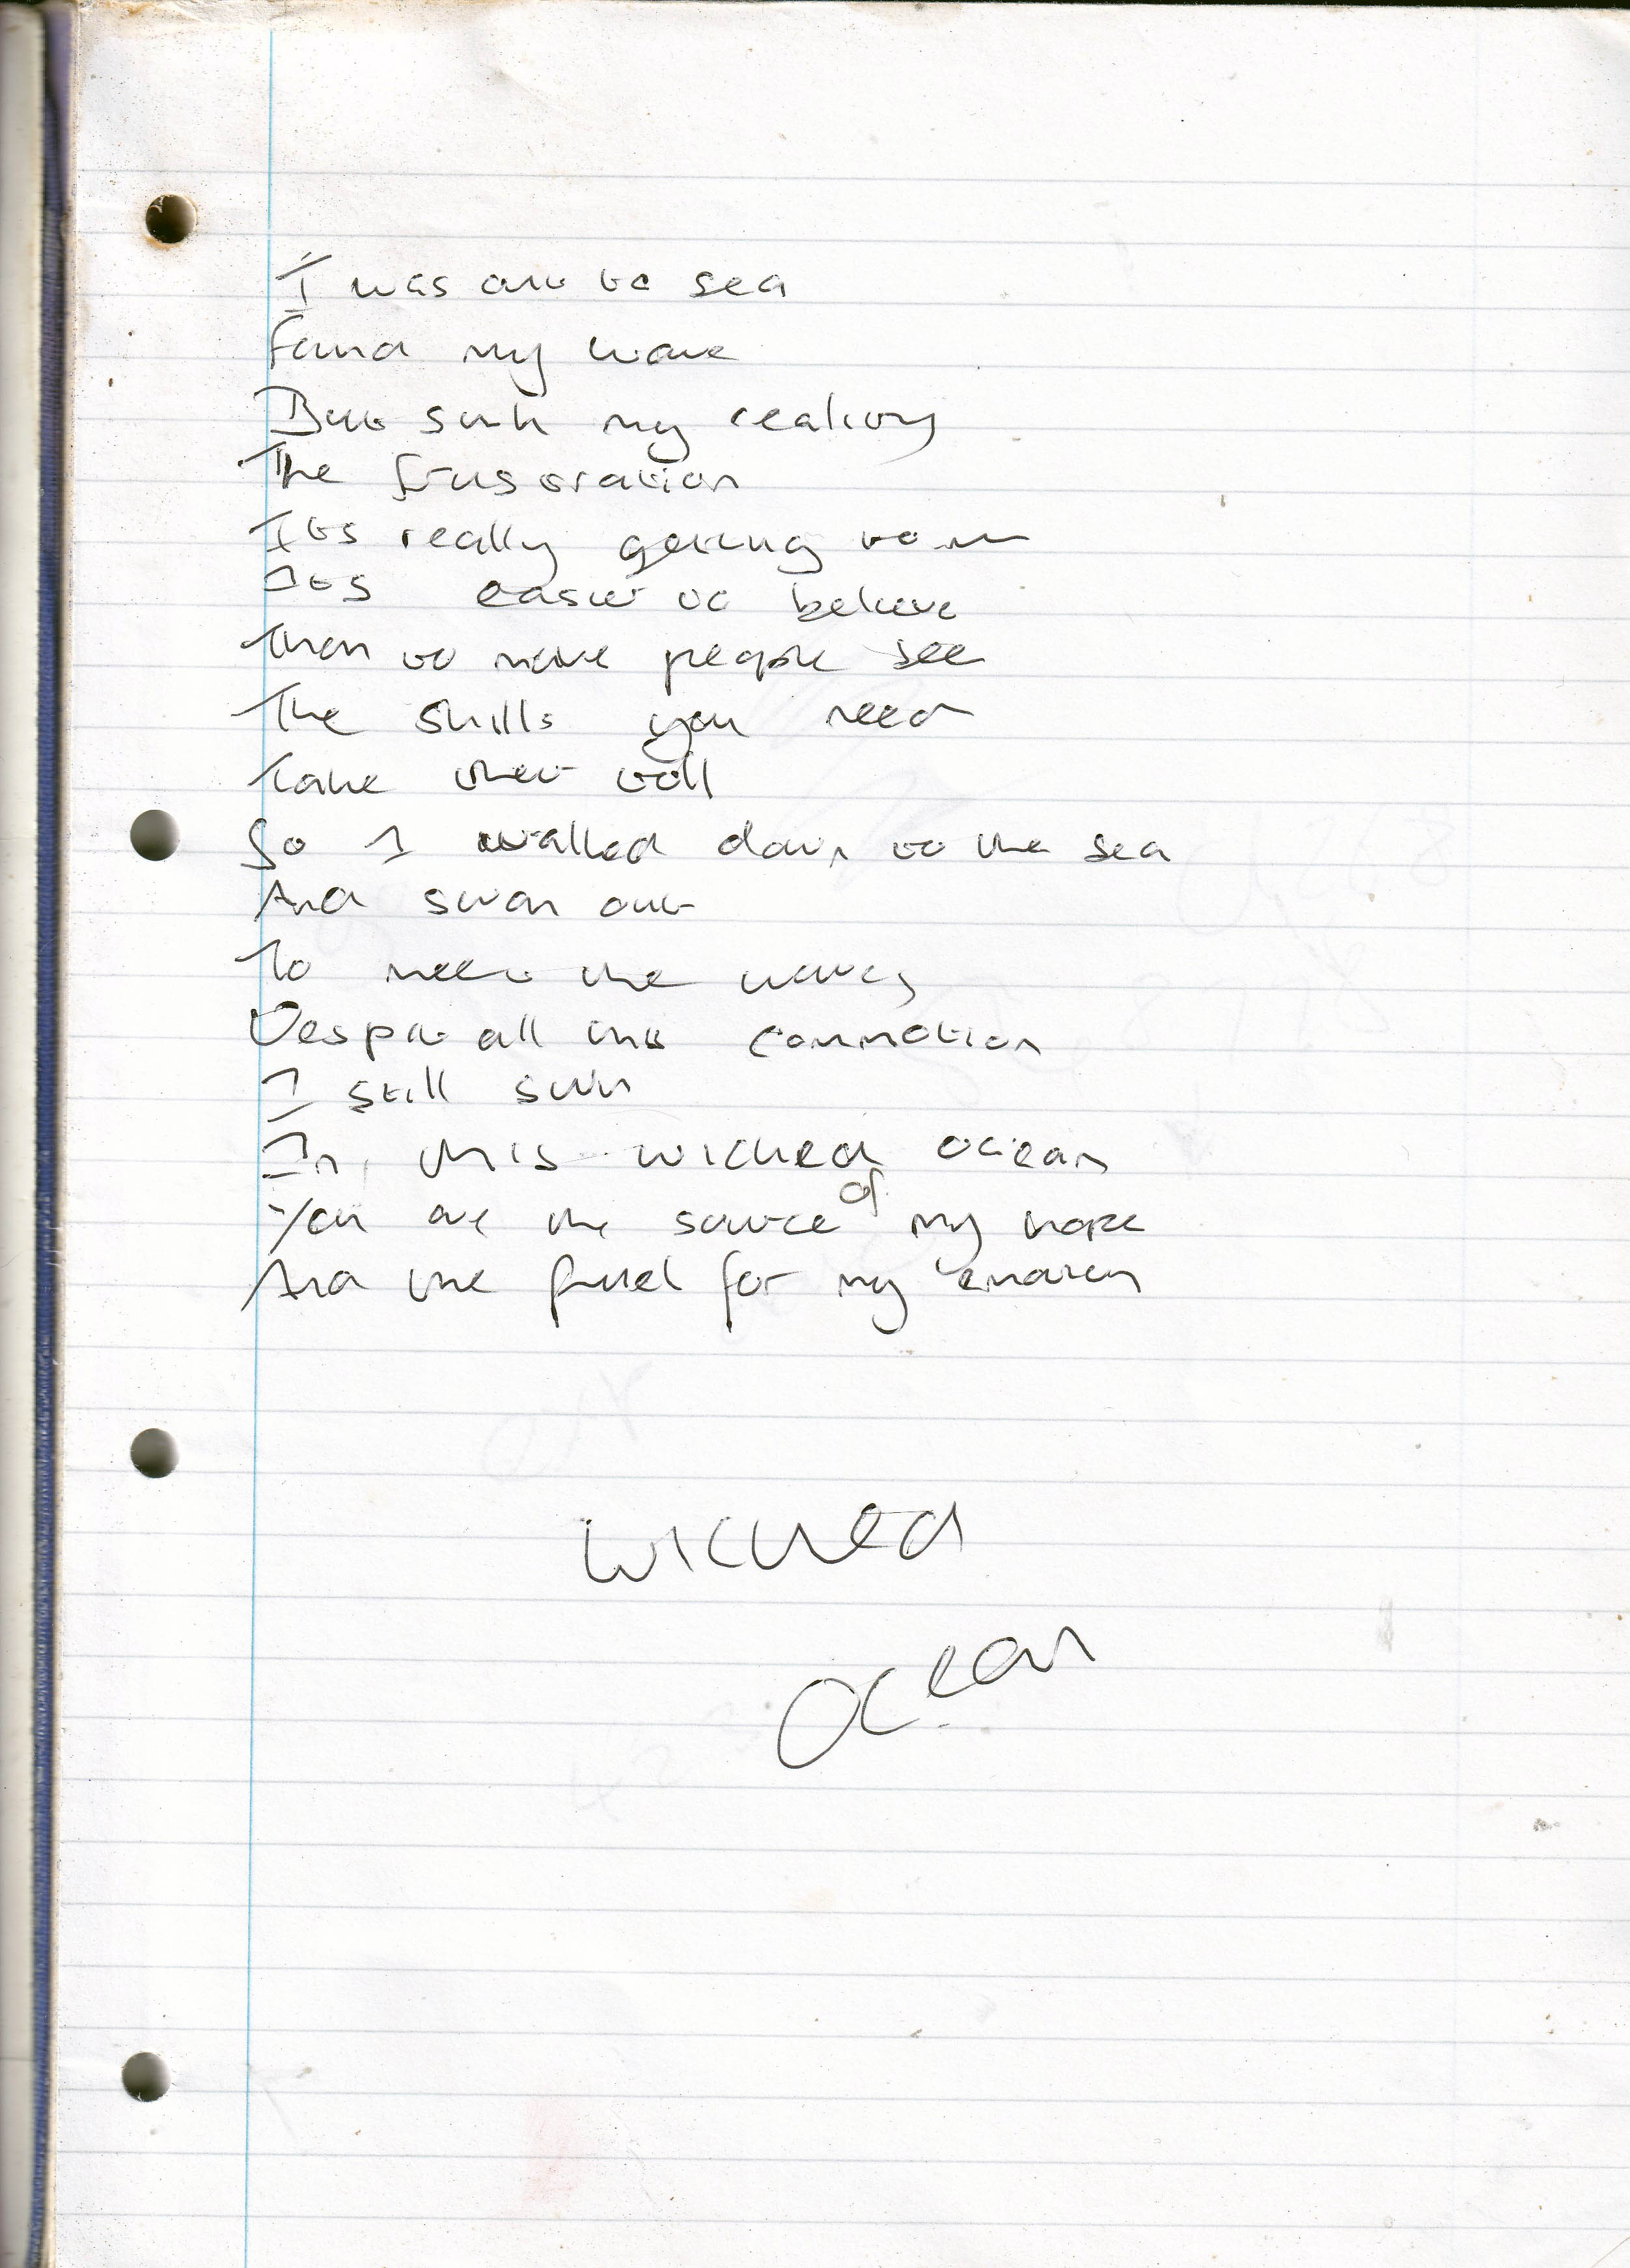 I was out to sea
Found my wave
But such my reality
The frustration
Its really getting to me
Its easier to believe
Then to make people see
The skills you need
Take their toll
So I walked down to the sea
And swam out
To meet the waves
Despite all this commotion
I still swim
In this wicked ocean
You are the source of my hope
And the fuel for my emotion
Wicked
Ocean